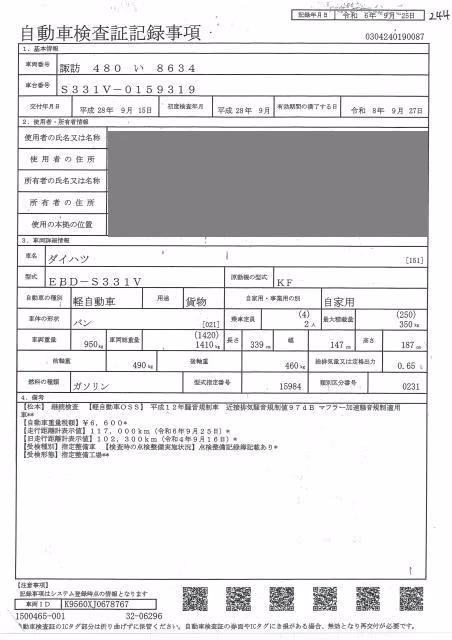 記録年月日 令和 6年 9月 25日
244
自動車検査証記録事項
0304240190087
1. 基本情報
車両番号 諏訪 480 い 8634
車台番号 S331V-0159319
交付年月日 平成 28年 9月 15日 初度検査年月 平成 28年 9月 有効期間の満了する日 令和 8年 9月 27日
2. 使用者・所有者情報
使用者の氏名又は名称
使用者の住所
所有者の氏名又は名称
所有者の住所
使用の本拠の位置
3. 車両詳細情報
車名 ダイハツ [151]
型式 EBD-S331V 原動機の型式 KF
自動車の種別 軽自動車 用途 貨物 自家用・事業用の別 自家用
車体の形状 バン [021] 乗車定員 (4) 2人 最大積載量 (250) 350kg
車両重量 950kg 車両総重量 (1420) 1410kg 長さ 339cm 幅 147cm 高さ 187cm
前軸重 490kg 後軸重 460kg 総排気量又は定格出力 0.65L
燃料の種類 ガソリン 型式指定番号 15984 類別区分番号 0231
4. 備考
【松本】 継続検査 【軽自動車OSS】 平成12年騒音規制車 近接排気騒音規制値97dB マフラー加速騒音規制適用
車**
【自動車重量税額】¥6,600*
【走行距離計表示値】117,000km（令和6年9月25日）*
【旧走行距離計表示値】102,300km（令和4年9月16日）*
【受検種別】指定整備車 【検査時の点検整備実施状況】点検整備記録簿記載あり*
【受検形態】指定整備工場**
【注意事項】
記録事項はシステム登録時点の情報となります
車両ID K9560XJ0678767
1500465-001 32-06296
自動車検査証のICタグ部分は折り曲げずに保管ください。自動車検査証の券面やICタグにき損がある場合、無効となり再交付が必要です。